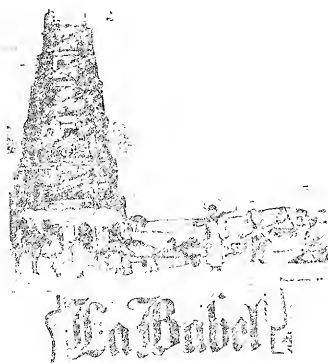 La Babel